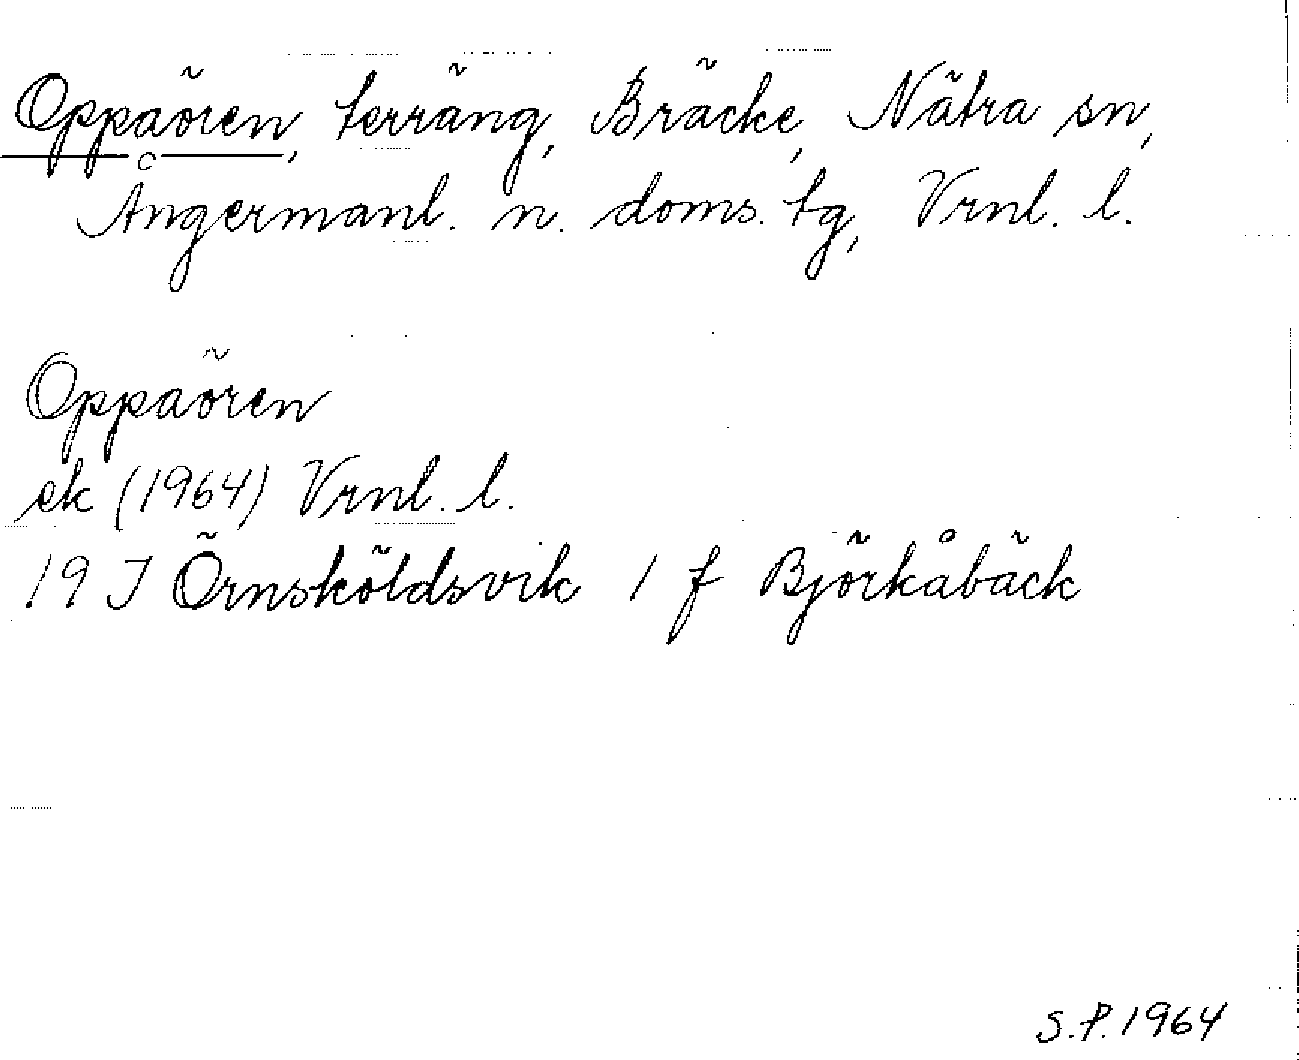 Oppaören, terräng, Bräcke, Nätra sn,
Ångermanl. n. doms. tg, Vrnl. l.
Oppaören
ek (1964) Vrnl. l.
19 J Örnsköldsvik 1 f Björkåbäck
S.P. 1964